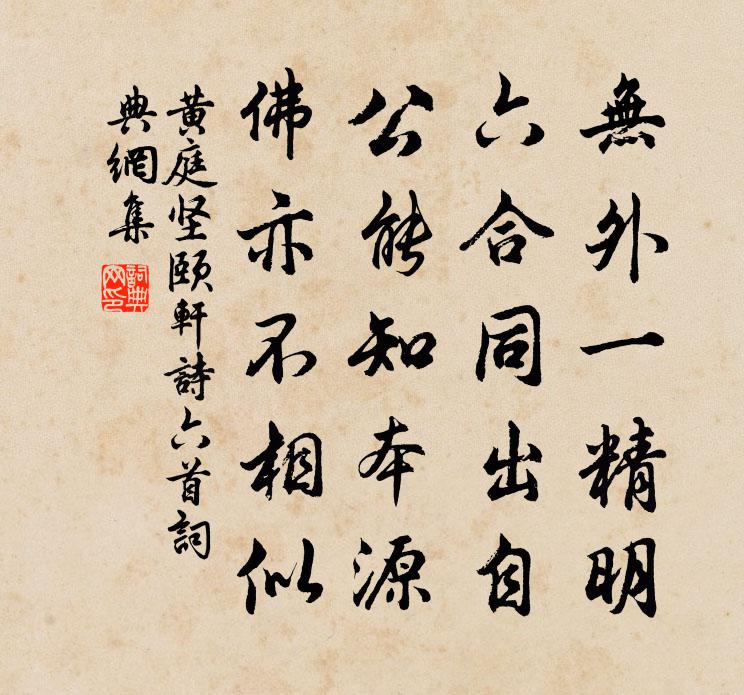 無外一精明
六合同出自
公能知本源
佛亦不相似
黄庭坚頤軒詩六首詞
典網集
詞典网印